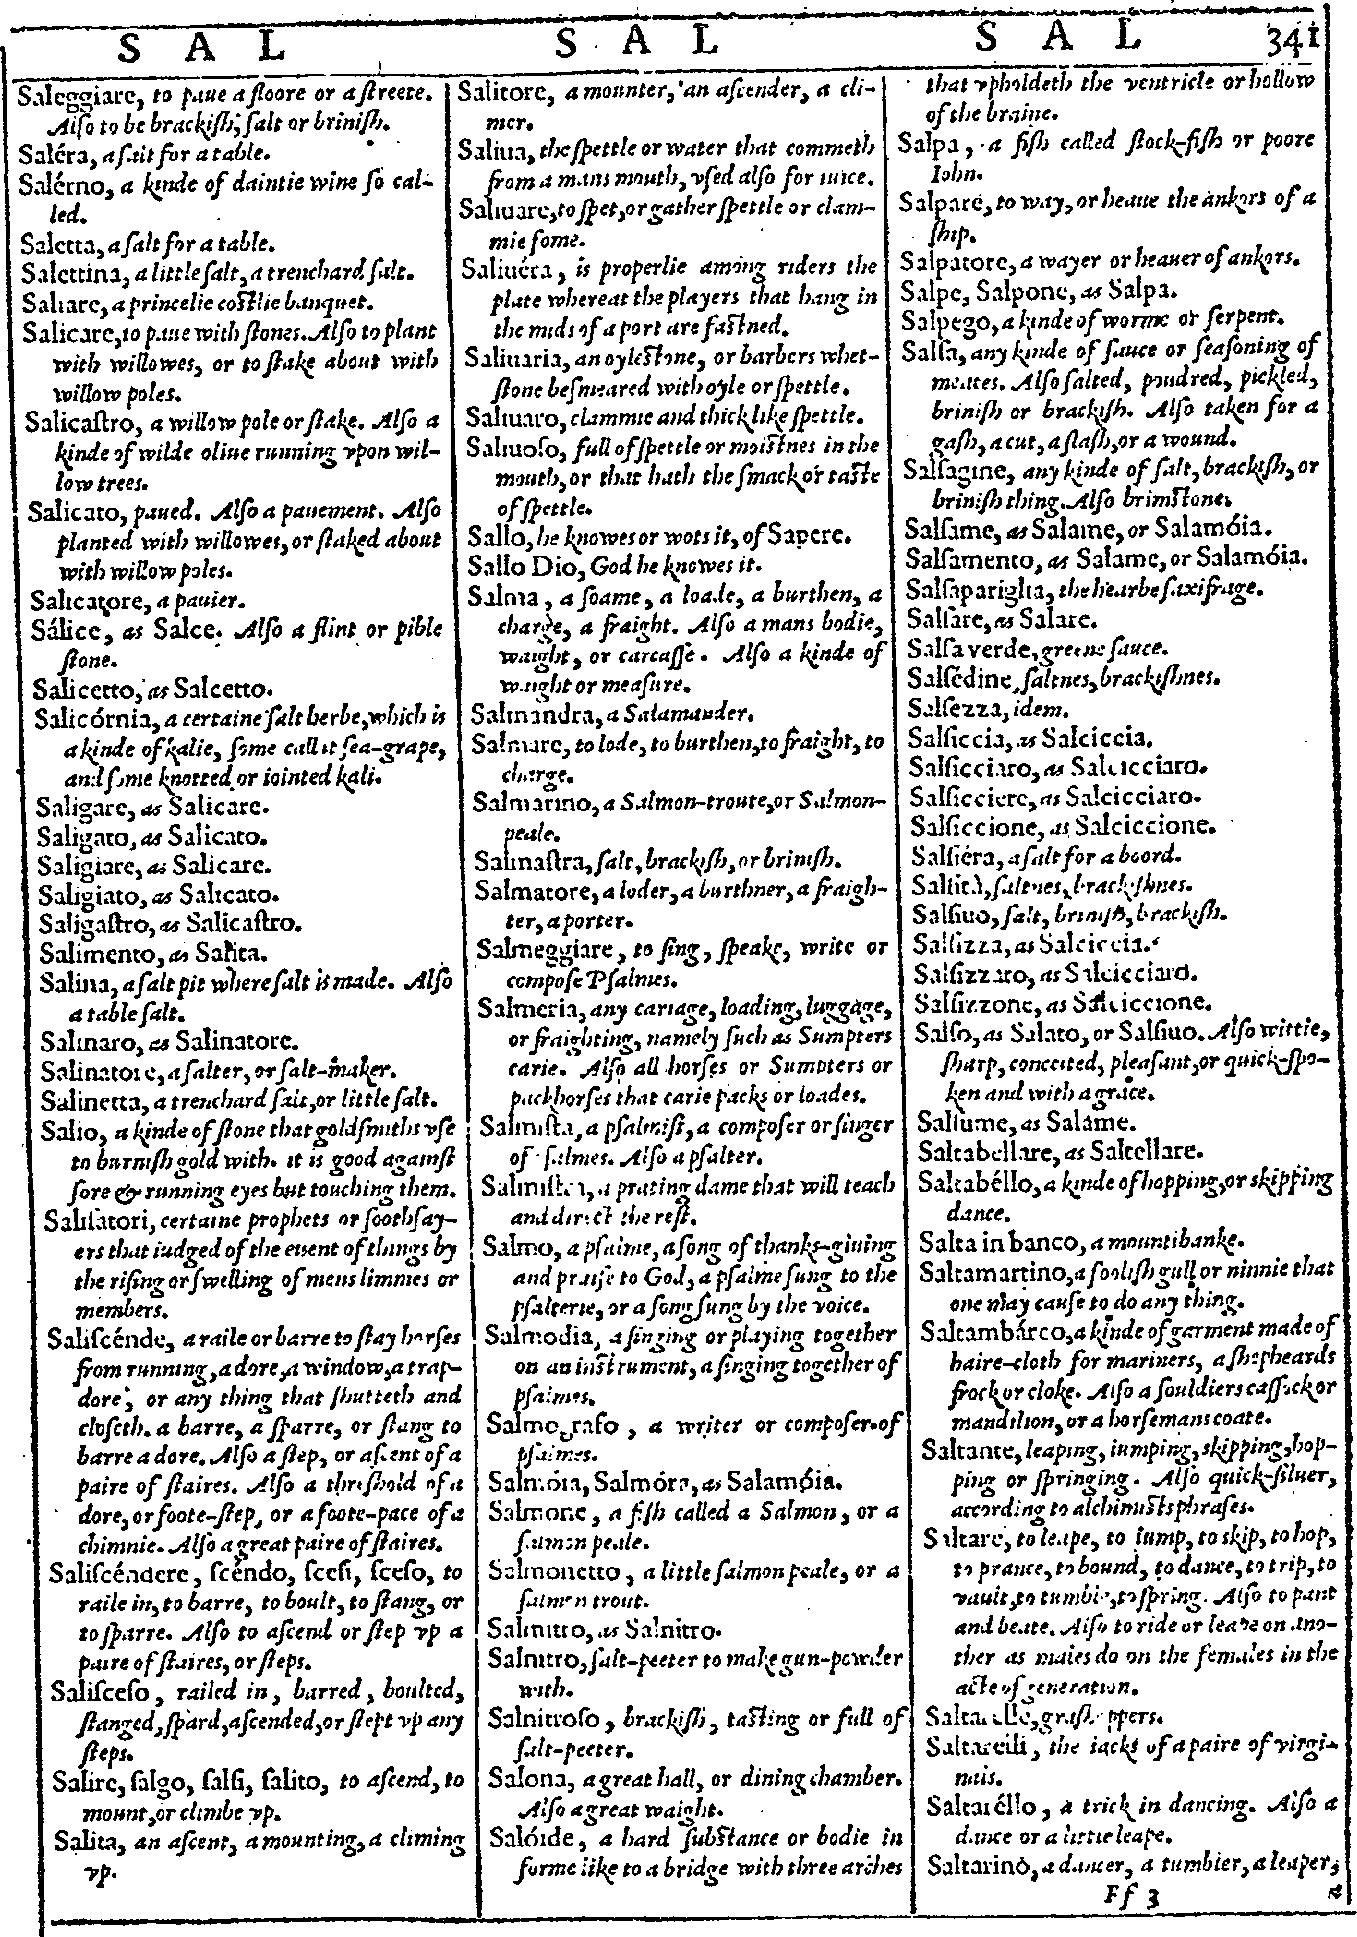 SAL SAL SAL 341
Saleggiare, to paue a floore or a streete.
Also to be brackish, salt or brinish.
Saléra, a salt for a table.
Salérno, a kinde of daintie wine so cal-
led.
Saletta, a salt for a table.
Salettina, a little salt, a trenchard salt.
Saliare, a princelie costlie banquet.
Salicare, to paue with stones. Also to plant
with willowes, or to stake about with
willow poles.
Salicastro, a willow pole or stake. Also a
kinde of wilde oliue running vpon wil-
low trees.
Salicato, paued. Also a pauement. Also
planted with willowes, or staked about
with willow poles.
Salicatore, a pauier.
Sálice, as Salce. Also a flint or pible
stone.
Salicetto, as Salcetto.
Salicórnia, a certaine salt herbe, which is
a kinde of kalie, some call it sea-grape,
and some knotted or iointed kali.
Saligare, as Salicare.
Saligato, as Salicato.
Saligiare, as Salicare.
Saligiato, as Salicato.
Saligastro, as Salicastro.
Salimento, as Salita.
Salina, a salt pit where salt is made. Also
a table salt.
Salinaro, as Salinatore.
Salinatore, a salter, or salt-maker.
Salinetta, a trenchard salt, or little salt.
Salio, a kinde of stone that goldsmiths vse
to burnish gold with. it is good against
sore & running eyes but touching them.
Salisatori, certaine prophets or soothsay-
ers that iudged of the euent of things by
the rising or swelling of mens limmes or
members.
Saliscénde, a raile or barre to stay horses
from running, a dore, a window, a trap-
dore, or any thing that shutteth and
closeth. a barre, a sparre, or stang to
barre a dore. Also a step, or ascent of a
paire of staires. Also a threshold of a
dore, or foote-step, or a foote-pace of a
chimnie. Also a great paire of staires.
Saliscéndere, scéndo, scesi, sceso, to
raile in, to barre, to boult, to stang, or
to sparre. Also to ascend or step vp a
paire of staires, or steps.
Salisceso, railed in, barred, boulted,
stanged, spard, ascended, or stept vp any
steps.
Salire, salgo, salsi, salito, to ascend, to
mount, or climbe vp.
Salita, an ascent, a mounting, a climing
vp.
Salitore, a mounter, an ascender, a cli-
mer.
Saliua, the spettle or water that commeth
from a mans mouth, vsed also for iuice.
Saliuare, to spet, or gather spettle or clam-
mie fome.
Saliuéra, is properlie among riders the
plate whereat the players that hang in
the mids of a port are fastned.
Saliuaria, an oylestone, or barbers whet-
stone besmeared with oyle or spettle.
Saliuaro, clammie and thick like spettle.
Saliuoso, full of spettle or moistnes in the
mouth, or that hath the smack or taste
of spettle.
Sallo, he knowes or wots it, of Sapere.
Sallo Dio, God he knowes it.
Salma, a soame, a loade, a burthen, a
charge, a fraight. Also a mans bodie,
waight, or carcasse. Also a kinde of
waight or measure.
Salmandra, a Salamander.
Salmare, to lode, to burthen, to fraight, to
charge.
Salmarino, a Salmon-troute, or Salmon-
peale.
Salmastra, salt, brackish, or brinish.
Salmatore, a loder, a burthner, a fraigh-
ter, a porter.
Salmeggiare, to sing, speake, write or
compose Psalmes.
Salmeria, any cariage, loading, luggage,
or fraighting, namely such as Sumpters
carie. Also all horses or Sumpters or
packhorses that carie packs or loades.
Salmista, a psalmist, a composer or singer
of psalmes. Also a psalter.
Salmistra, a prating dame that will teach
and direct the rest.
Salmo, a psalme, a song of thanks-giuing
and praise to God, a psalme sung to the
psalterie, or a song sung by the voice.
Salmodia, a singing or playing together
on an instrument, a singing together of
psalmes.
Salmografo, a writer or composer of
psalmes.
Salmóia, Salmóra, as Salamóia.
Salmone, a fish called a Salmon, or a
salmon peale.
Salmonetto, a little salmon peale, or a
salmon trout.
Salmitro, as Salnitro.
Salnitro, salt-peeter to make gun-powder
with.
Salnitroso, brackish, tasting or full of
salt-peeter.
Salona, a great hall, or dining chamber.
Also a great waight.
Salóide, a hard substance or bodie in
forme like to a bridge with three arches
that vpholdeth the ventricle or hollow
of the braine.
Salpa, a fish called stock-fish or poore
Iohn.
Salpare, to way, or heaue the ankors of a
ship.
Salpatore, a wayer or heauer of ankors.
Salpe, Salpone, as Salpa.
Salpego, a kinde of worme or serpent.
Salsa, any kinde of sauce or seasoning of
meates. Also salted, poudred, pickled,
brinish or brackish. Also taken for a
gash, a cut, a slash, or a wound.
Salsagine, any kinde of salt, brackish, or
brinish thing. Also brimstone.
Salsame, as Salame, or Salamóia.
Salsamento, as Salame, or Salamóia.
Salsapariglia, the hearbe saxifrage.
Salsare, as Salare.
Salsa verde, greene sauce.
Salsédine, saltnes, brackishnes.
Salsezza, idem.
Salsiccia, as Salciccia.
Salsicciaro, as Salcicciaro.
Salsicciere, as Salcicciaro.
Salsiccione, as Salciccione.
Salsiéra, a salt for a boord.
Salsità, saltnes, brackishnes.
Salsiuo, salt, brinish, brackish.
Salsizza, as Salciccia.
Salsizzaro, as Salcicciaro.
Salsizzone, as Salciccione.
Salso, as Salato, or Salsiuo. Also wittie,
sharp, conceited, pleasant, or quick-spo-
ken and with a grace.
Salsume, as Salame.
Saltabellare, as Saltellare.
Saltabéllo, a kinde of hopping, or skipping
dance.
Salta in banco, a mountibanke.
Saltamartino, a foolish gull or ninnie that
one may cause to do any thing.
Saltambárco, a kinde of garment made of
haire-cloth for mariners, a shepheards
frock or cloke. Also a souldiers cassock or
mandilion, or a horsemans coate.
Saltante, leaping, iumping, skipping, hop-
ping or springing. Also quick-siluer,
according to alchimists phrases.
Saltare, to leape, to iump, to skip, to hop,
to prance, to bound, to dance, to trip, to
vault, to tumble, to spring. Also to pant
and beate. Also to ride or leape on ano-
ther as males do on the females in the
acte of generation.
Saltarelle, grashoppers.
Saltarelli, the iacks of a paire of virgi-
nals.
Saltaréllo, a trick in dancing. Also a
dance or a little leape.
Saltarino, a dancer, a tumbler, a leaper,
Ff 3 a